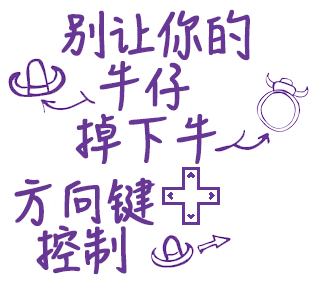 别让你的
牛仔
掉下牛
方向键
控制